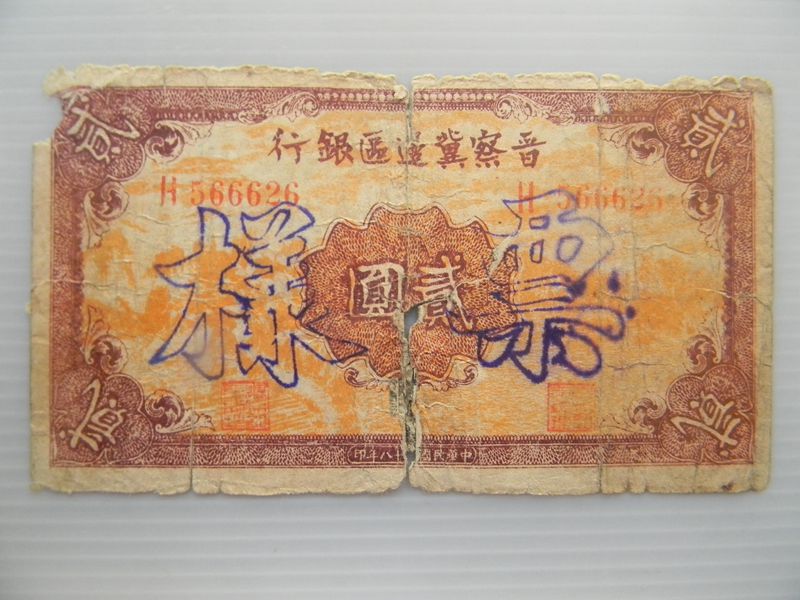 貳
貳
晉察冀邊區銀行
H 566626
H 566626
樣票
貳圓
貳
貳
中華民國 八年印